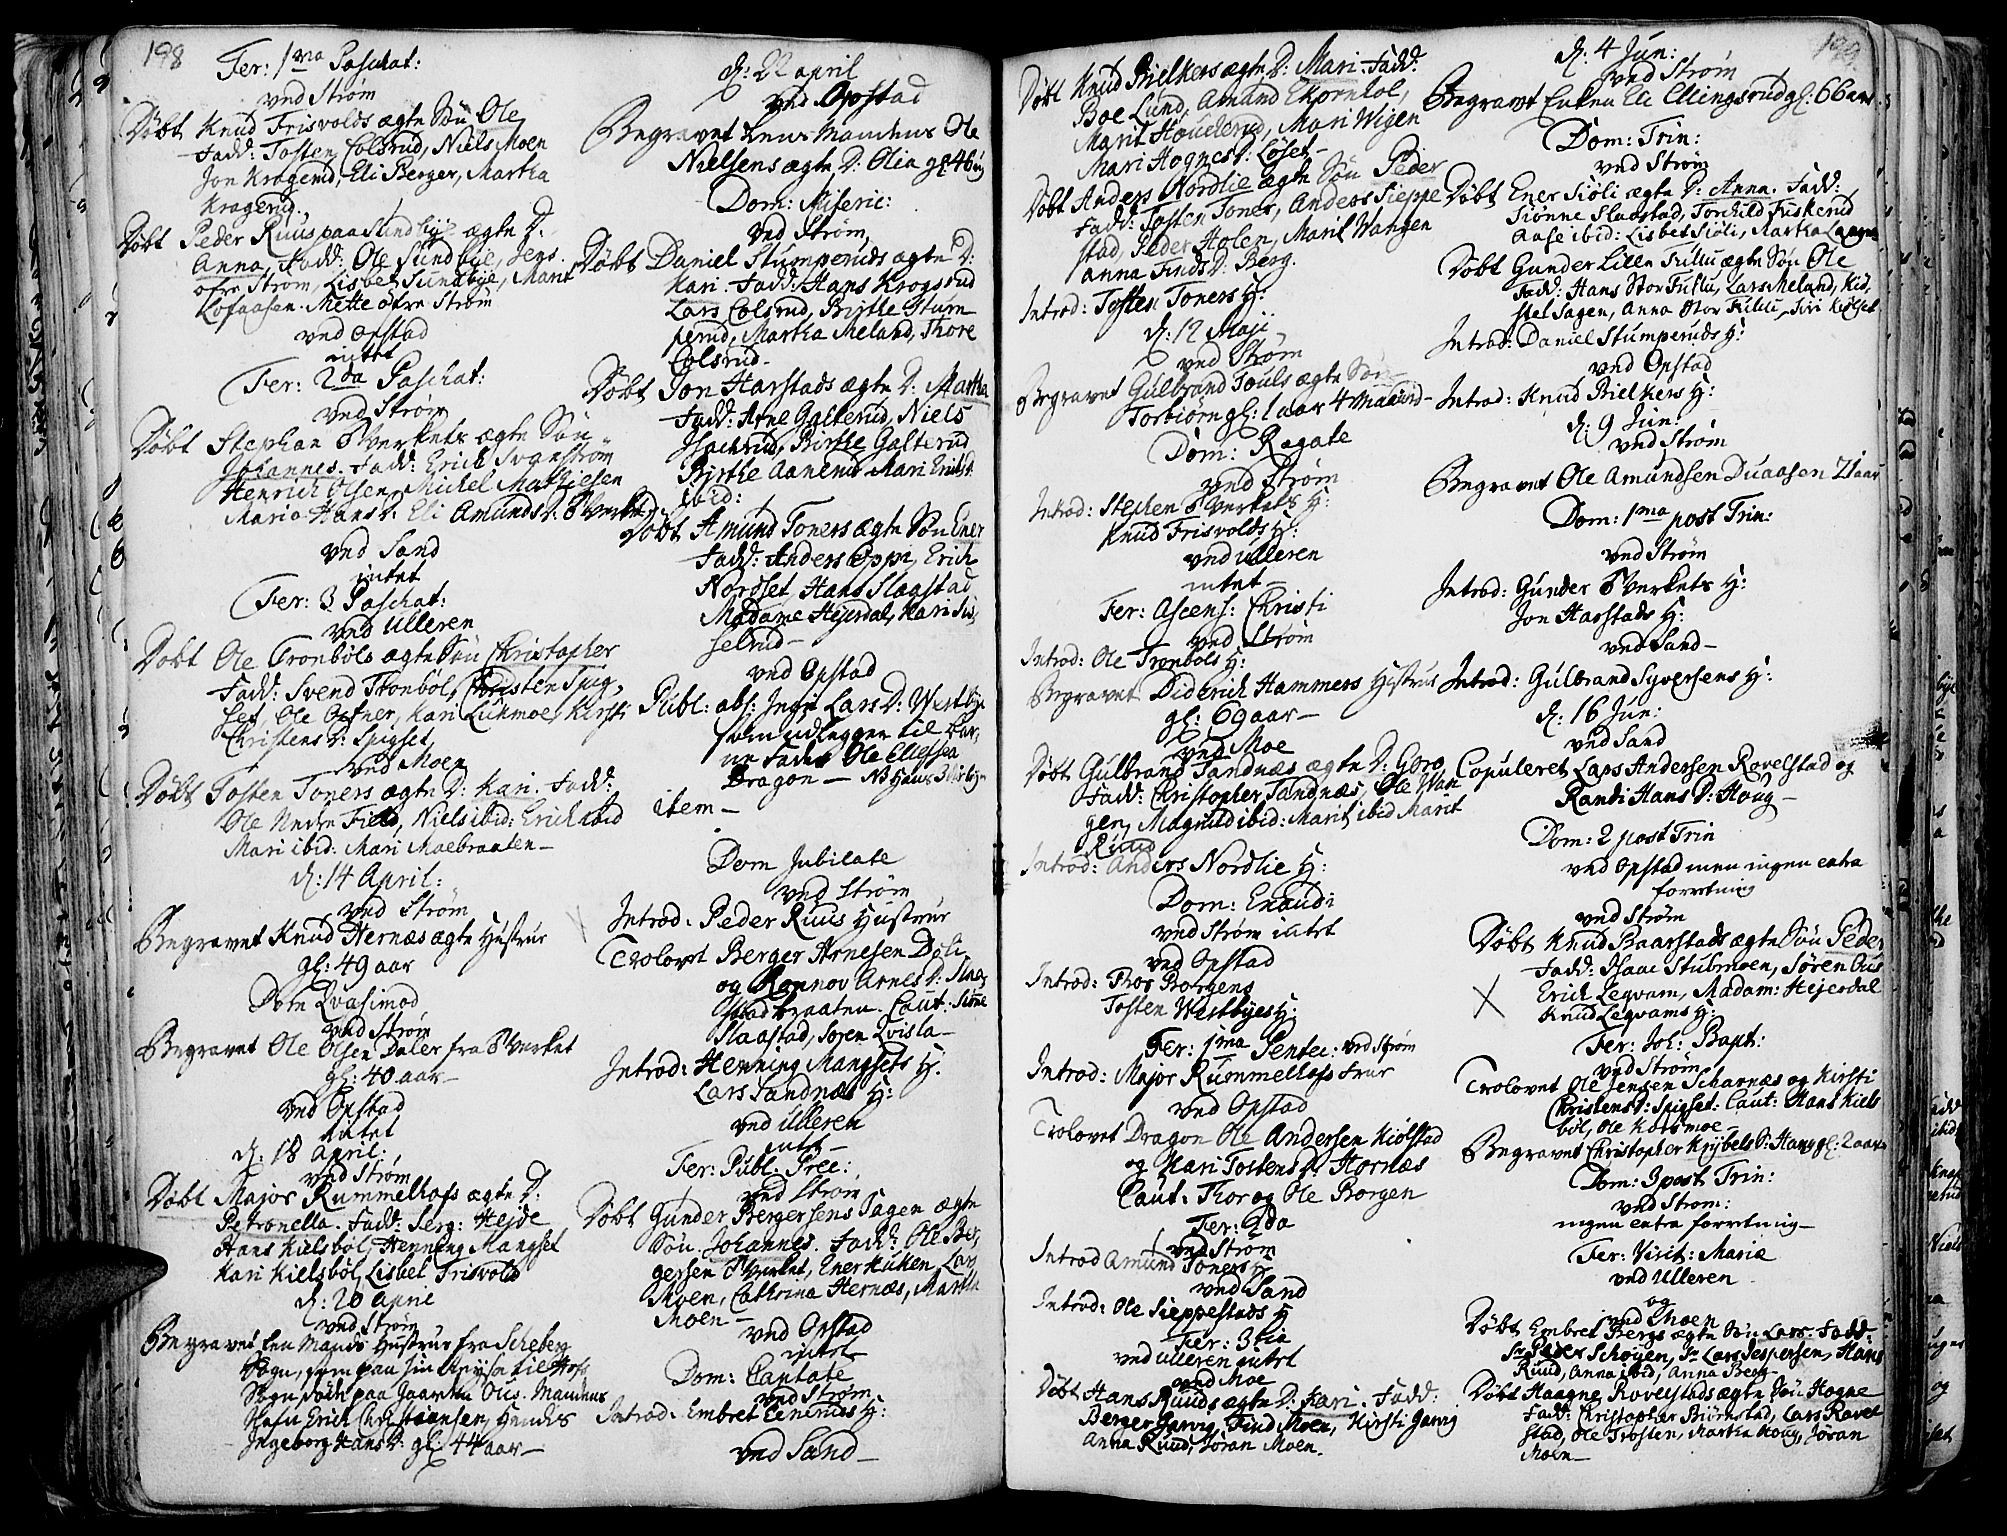 198
Fer: 1ma Paschat:
ved Strøm
Døbt Knud Frisvolds ægte Søn Ole
Fadd: Tosten Colsrud, Niels Moen
Jon Kragerud, Eli Berger, Martha
Kragerud.
Døbt Peder Ruus paa Sundbye ægte D:
Anna, Fadd: Ole Sundbye, Jens
øfre Strøm, Lisbet Sundbye, Marit
Lofaasen. Mette øfre Strøm
ved Opstad
intet
Fer: 2da Paschat:
ved Strøm
Døbt Stephan Verkets ægte Søn
Johannes. Fadd: Erich Svanstrøm
Henrich Olsen, Michel Mathiesen
Maria Hans D: Eli Amunds D: Verket
ved Sand
intet
Fer: 3 Paschat:
ved Ulleren
Døbt Ole Tronbøls ægte Søn Christopher
Fadd: Svend Tronbøl, Christen Spig,
set, Ole Opfner, Kari Lukmoe, Kirsti
Christens D: Spigset
ved Moen
Døbt Tosten Toners ægte D: Kari. Fadd:
Ole Nedre Field, Niels ibid: Erich ibid
Mari ibid: Mari Moebraaten
d: 14 April:
ved Strøm
Begravet Knud Hernæs ægte Hustrue
gl: 49 aar
Dom Qvasimod
ved Strøm
Begravet Ole Olsen Daler fra Verket
gl: 40 aar
ved Opstad
intet
d: 18 April:
ved Strøm
Døbt Major Rummelhofs ægte D:
Petronella. Fadd: Serg: Hejde
Hans Kielsbøl, Henning Mangset
Kari Kielsbøl, Lisbet Frisvold
d: 20 April
ved Strøm
Begravet een Mands Hustrue fra Scheberg
Sogn, som paa sin Rejse til Hofs
Sogn døde paa Gaarden Ous. Mandens
Nafn Erich Christiansen, Hendes
Ingeborg Hans D: gl: 44 aar
d: 22 april
ved Opstad
Begravet Lens Mandens Ole
Nielsens ægte D: Olia gl: 46
Dom: Miseric:
ved Strøm
Døbt Daniel Stumperuds ægte D:
Kari. Fadd: Hans Krogsrud
Lars Colsrud, Birthe Stum
perud, Martha Meland, Thore
Colsrud.
Døbt Jon Harstads ægte D: Martha
Fadd: Arne Galterud, Niels
Isachrud, Birthe Galterud
Birthe Aanerud Mari Erichs D:
ibid:
Døbt Amund Toners ægte Søn Ener
Fadd: Anders Oppi, Erich
Nordset Hans Slaastad
Madame Hejerdal, Kari Sis,
selrud
ved Opstad
Publ: abs: Ingri Lars D: Westbye
som udlegger til Bar,
ne Fader Ole Eliessen
Dragon
item
Dom Jubilate
ved Strøm
Introd: Peder Ruus Hustrue
Trolovet Berger Arnesen Doli
og Rønnov Arnes D: Slaa,
stadbraaten. Caut: Siønne
Slaastad, Søren Qvisla
Introd: Henning Mangsets H:
Lars Sandnæs H:
ved Ulleren
intet
Fer: Publ: Prec:
ved Strøm
Døbt Gunder Bergersens Sagen ægte
Søn Johannes. Fadd: Ole Ber,
gersen Verket, Ener Kuken, Lars
Moen, Cathrina Hernæs, Martha
Moen
ved Opstad
intet
Dom: Cantate
ved Strøm
Introd: Embret Eneruds H:
ved Sand
199
Døbt Knud Bielkers ægte D: Mari. Fadd:
Boe Lund, Amund Ekornhol,
Marit Houkerud, Mari Wigen
Mari Hognes D: Løset
Døbt Anders Nordlie ægte Søn Peder
Fadd: Tosten Toner, Anders Sieppe
stad, Peder Holen, Marit Wangen
anna Finds D: Berg.
Introd: Tosten Toners H:
d: 12 Maji
ved Strøm
Begravet Gulbrand Fouls ægte Søn
Torbiørn gl: 1 aar 4 Maaned
Dom: Rogate
ved Strøm
Introd: Stephen Verkets H:
Knud Frisvolds H:
ved Ulleren
intet
Fer: Ascens: Christi
ved Strøm
Introd: Ole Tronbøls H:
Begravet Diderich Hammers Hustrue
gl: 69 aar
ved Moe
Døbt Gulbrand Sandnæs ægte D: Goro
Fadd: Christopher Sandnæs, Ole Wan
gen, Magnild ibid: Marit ibid Marit
Ruud
Introd: Anders Nordlie H:
Dom: Exaudi
ved Strøm intet
ved Opstad
Introd: Thor Borgens
Tosten Westbyes H:
Fer: 1ma Pentec: ved Strøm
Introd: Major Rummelhofs Frue
ved Opstad
Trolovet Dragon Ole Andersen Kiølstad
og Kari Tostens D: Hornæs
Caut: Thor og Ole Borgen
Fer: 2da
ved Strøm
Introd Amund Toners H:
ved Sand
Introd: Ole Sieppestads H
Fer: 3tia
ved Ulleren intet
ved Moe
Døbt Hans Ruuds ægte D: Kari. Fadd:
Berger Garvig, Find Moen, Kirsti Garvig
Anna Ruud, Jøran Moen.
d: 4 Jun:
ved Strøm
Begravet Enken Eli Ellingsrud gl: 66 aar
Dom: Trin:
ved Strøm
Døbt Ener Siøli ægte D: Anna. Fadd:
Siønne Slaastad, Torchild Fiskerud
Aase ibid: Lisbet Siøli, Martha Laugen
Døbt Gunder Lille Fullu ægte Søn Ole
Fadd: Hans Stor Fullu, Lars Meland, Kid,
stel Sagen, Anna Stor Fullu, Siri Kiølset
Introd: Daniel Stumperuds H:
ved Opstad
Introd: Knud Bielkers H:
d: 9 Jun:
ved Strøm
Begravet Ole Amundsen Duaasen 21 aar
Dom: 1ma post Trin:
ved Strøm
Introd: Gunder Verkets H:
Jon Harstads H:
ved Sand
Introd: Gulbrand Syversens H:
d: 16 Jun:
ved Sand
Copuleret Lars Andersen Rovelstad og
Randi Hans D: Houg
Dom: 2 post Trin
ved Opstad men ingen extra
forretning
ved Strøm
Døbt Knud Baarstads ægte Søn Peder
Fadd: Isaac Stubmoen, Søren Ous
Erich Leqvam, Madam: Hejerdal
Knud Leqvams H:
Fer: Joh: Bapt:
ved Strøm
Trolovet Ole Jensen Scharnæs og Kirsti
Christens D: Spigset: Caut: Hans Kiels
bøl, Ole Korsmoe
Begravet Christopher Knybels D: Hans gl: 2 aar
Dom: 3 post Trin:
ved Strøm:
ingen extra forretning
Fer: Visit: Mariæ
ved Ulleren
og
ved Moen
Døbt Embret Bergs ægte Søn Lars. Fadd:
Sr Peder Schøyen, Sr Lars Jespersen, Hans
Ruud, Anna ibid, Anna Berg
Døbt Haagne Rovelstads ægte Søn Hogne
Fadd: Christopher Biørnstad, Lars Rovel
stad, Ole Trosten, Martha Houg, Jøran
Moen